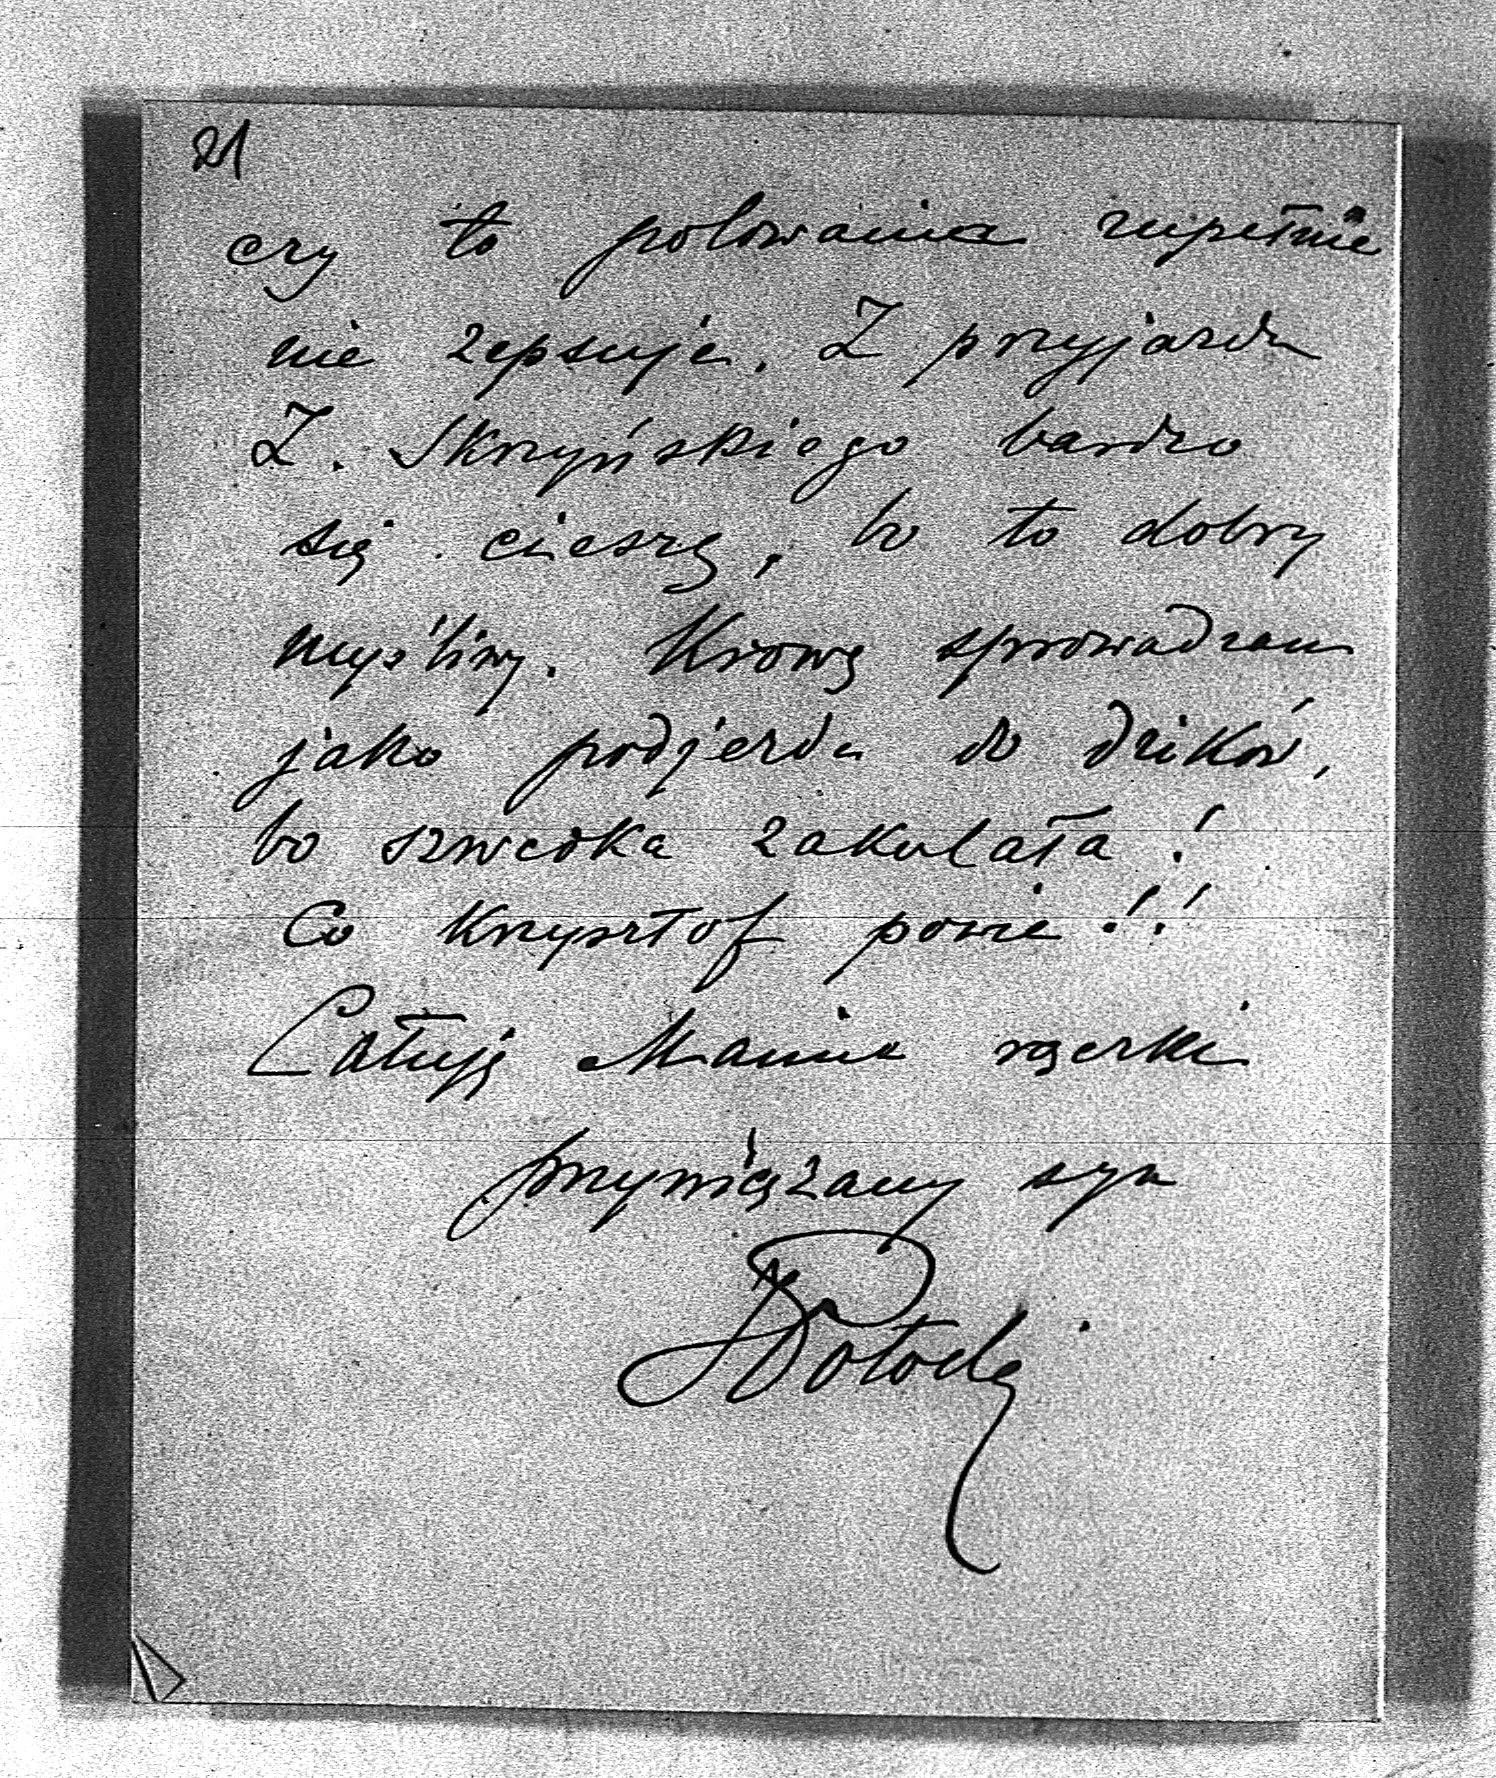 21
czy to polowania zupełnie
nie zepsuje. Z przyjazdu
Z. Skrzyńskiego bardzo
się cieszę, bo to dobry
myśliwy. Krowę sprowadzam
jako podjezdu do dzików,
bo szwedka zakulała!
Co Krzysztof powie!!
Całuję Mamie rączki
przywiązany syn